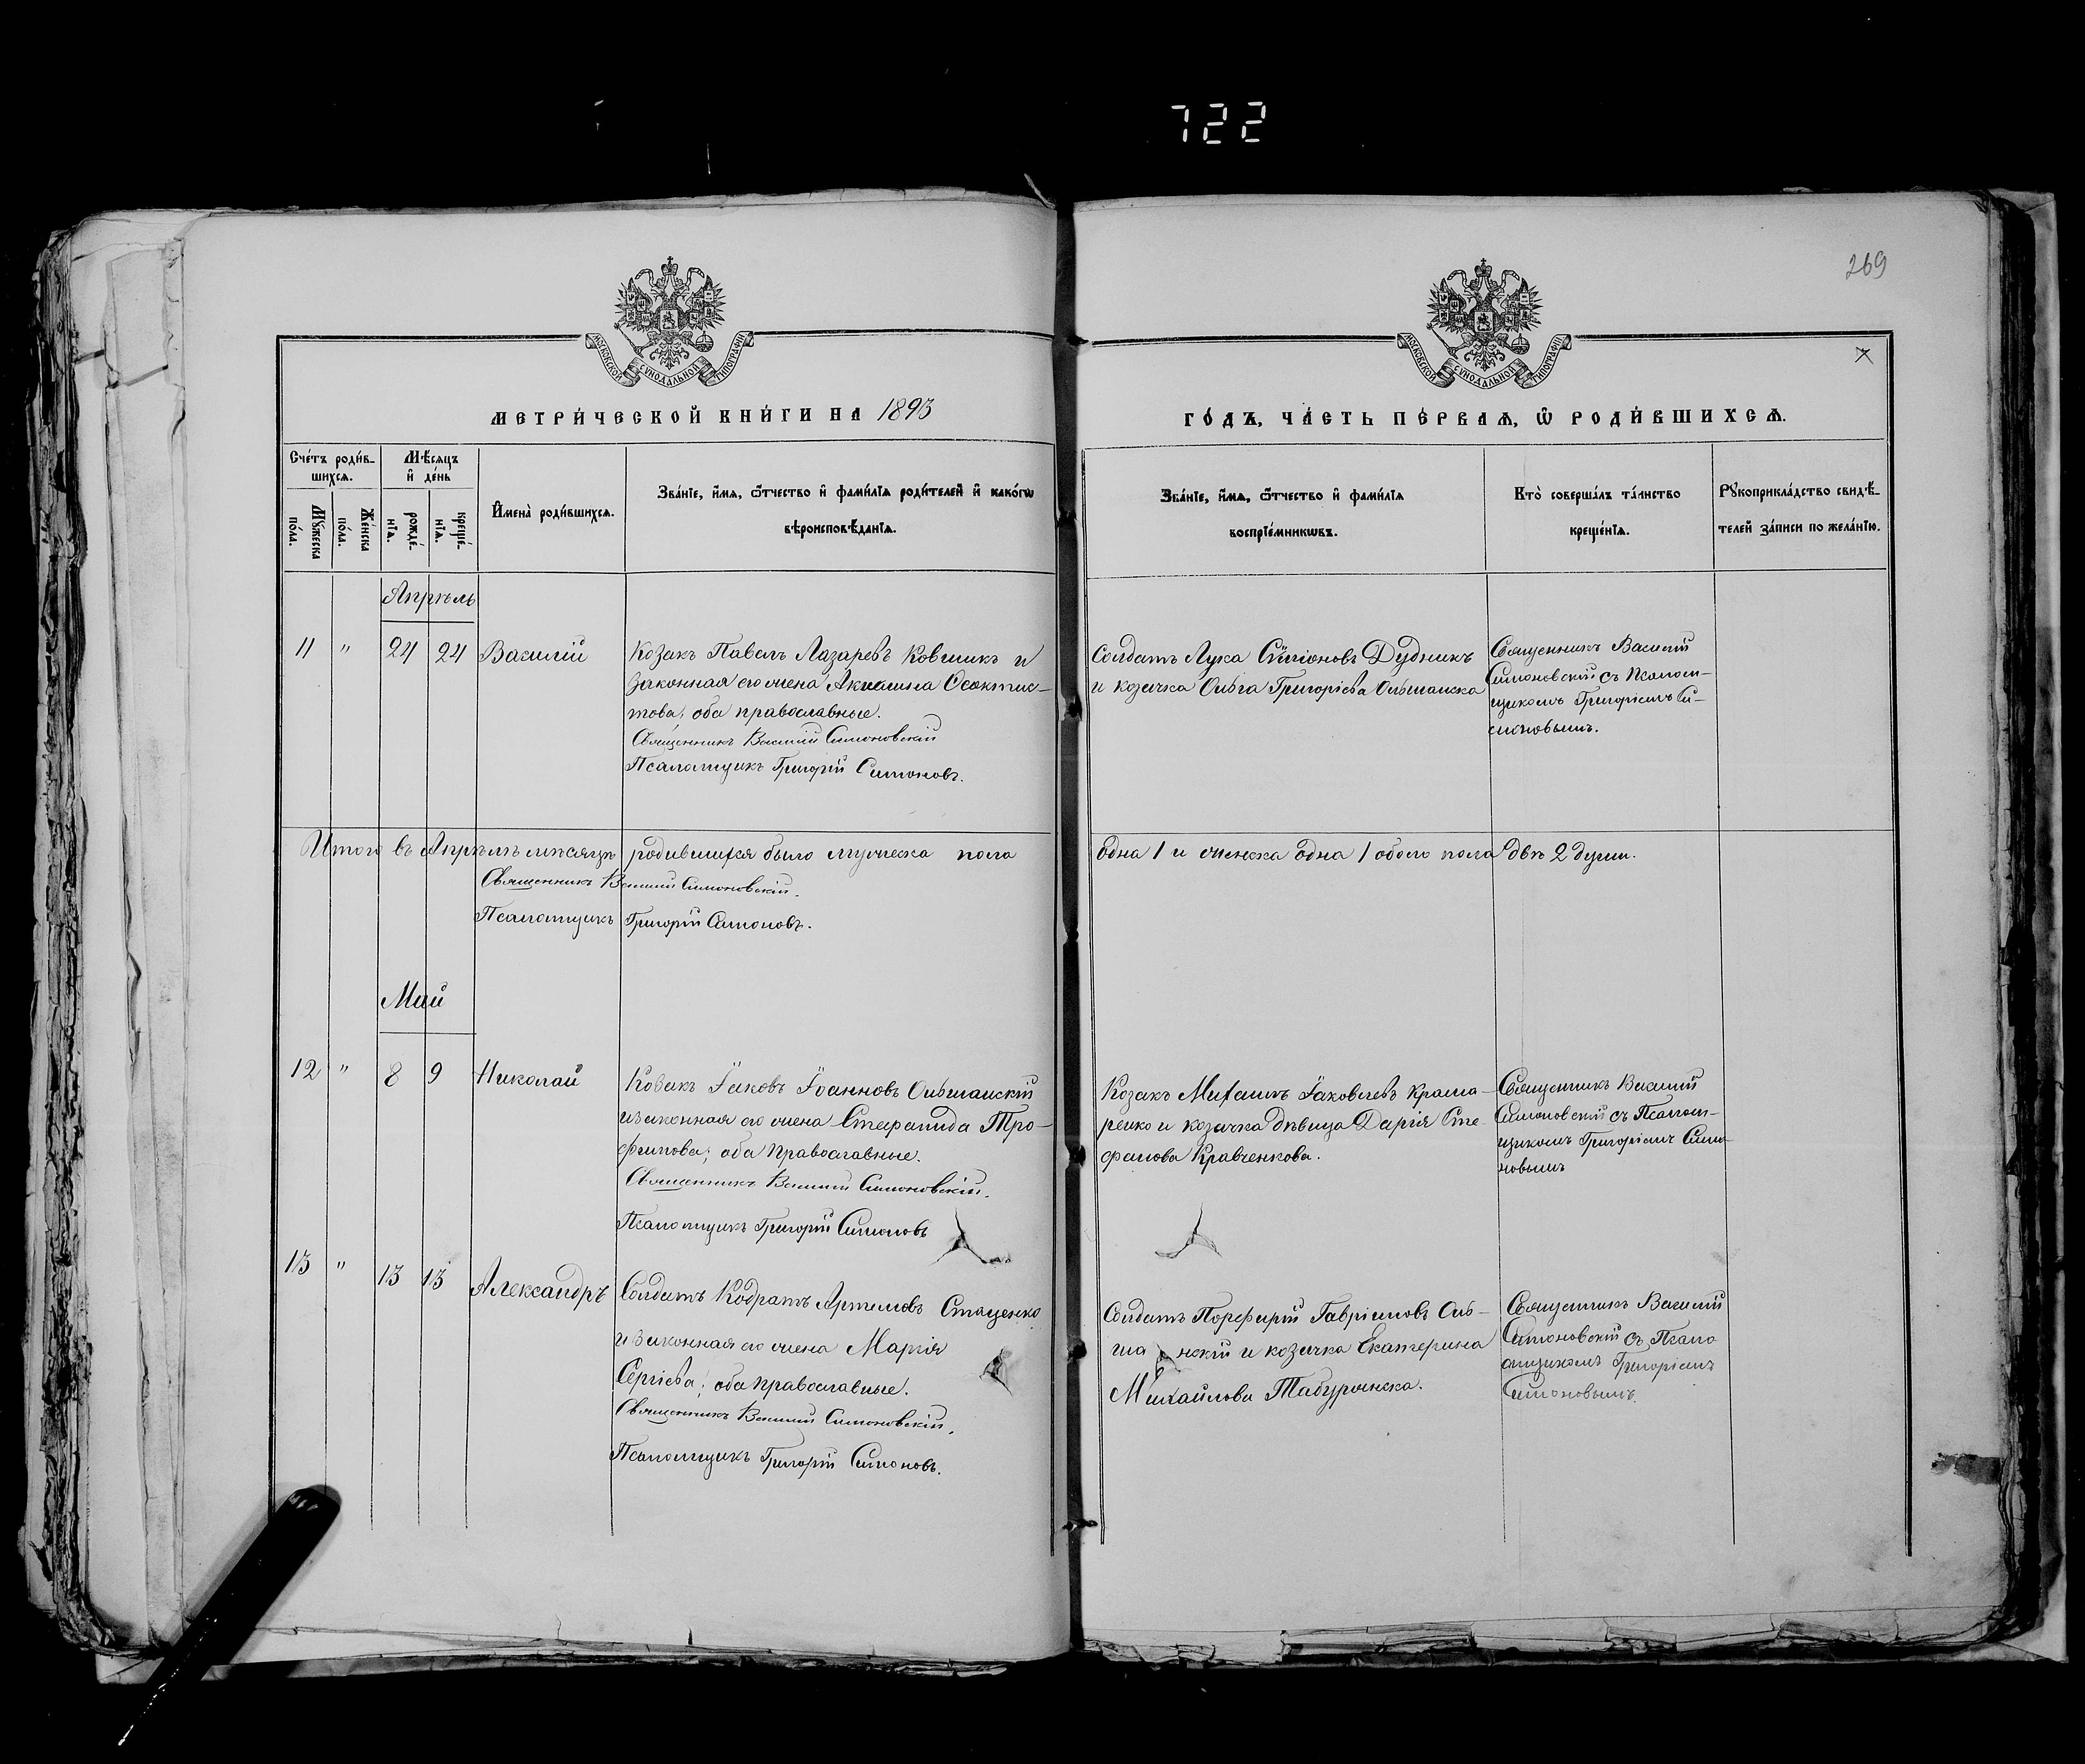 722
269
МОСКОВСКОЙ СУНОДАЛЬНОЙ ТИПОГРАФІИ
МОСКОВСКОЙ СУНОДАЛЬНОЙ ТИПОГРАФІИ
МЕТРИ́ЧЕСКОЙ КНИ́ГИ НА 1893
ГО́ДЪ, ЧА́СТЬ ПЕ́РВАѦ, Ѽ РОДИ́ВШИХСѦ.
Сче́тъ роди́в-
шихсѧ.
Мꙋ́жеска
по́ла.
Же́нска
по́ла.
Мѣ́сѧцъ
и҆ де́нь
рожде́-
нїѧ.
креще́-
нїѧ.
И҆мена̀ роди́вшихсѧ.
Зва́нїе, и҆́мѧ, ѻ҆́тчество и҆ фами́лїѧ роди́телей и҆ како́гѡ
вѣроисповѣ́данїѧ.
Зва́нїе, и҆́мѧ, ѻ҆́тчество и҆ фами́лїѧ
воспрїе́мникѡвъ.
Кто̀ соверша́лъ та́инство
креще́нїѧ.
Рꙋкоприкла́дство свидѣ́-
телей за́писи по жела́нїю.
Апрѣль
11 " 24 24 Василій
Козакъ Павелъ Лазаревъ Ковшикъ и
законная его жена Акилина Ѳеоктис-
това, оба православные.
Священникъ Василій Симоновскій
Псаломщикъ Григорій Симоновъ.
Солдатъ Лука Сѵмеоновъ Дудникъ
и козачка Ольга Григоріева Ольшанска
Священникъ Василій
Симоновскій съ Псалом-
щикомъ Григоріемъ Си-
моновымъ.
Итого въ Апрѣлѣ мѣсяцѣ родившихся было мужеска пола
одна 1 и женска одна 1 обоего пола двѣ 2 души.
Священникъ Василій Симоновскій.
Псаломщикъ Григорій Симоновъ.
Май
12 " 8 9 Николай
Козакъ Іаковъ Іоанновъ Ольшанскій
и законная его жена Стефанида Тро-
фимова; оба православные.
Священникъ Василій Симоновскій.
Псаломщикъ Григорій Симоновъ
Козакъ Михаилъ Іаковлевъ Крама-
ренко и козачка дѣвица Дарія Сте
фанова Кравченкова.
Священникъ Василій
Симоновскій съ Псалом-
щикомъ Григоріемъ Симо-
новымъ
13 " 13 13 Александръ
Солдатъ Кодратъ Артемовъ Стаценко
и законная его жена Марія
Сергіева; оба православные.
Священникъ Василій Симоновскій.
Псаломщикъ Григорій Симоновъ.
Солдатъ Порфирій Гавріиловъ Оль-
ша нскій и козачка Екатерина
Михайлова Табурянска.
Священникъ Василій
Симоновскій съ Псало
мщикомъ Григоріемъ
Симоновымъ.